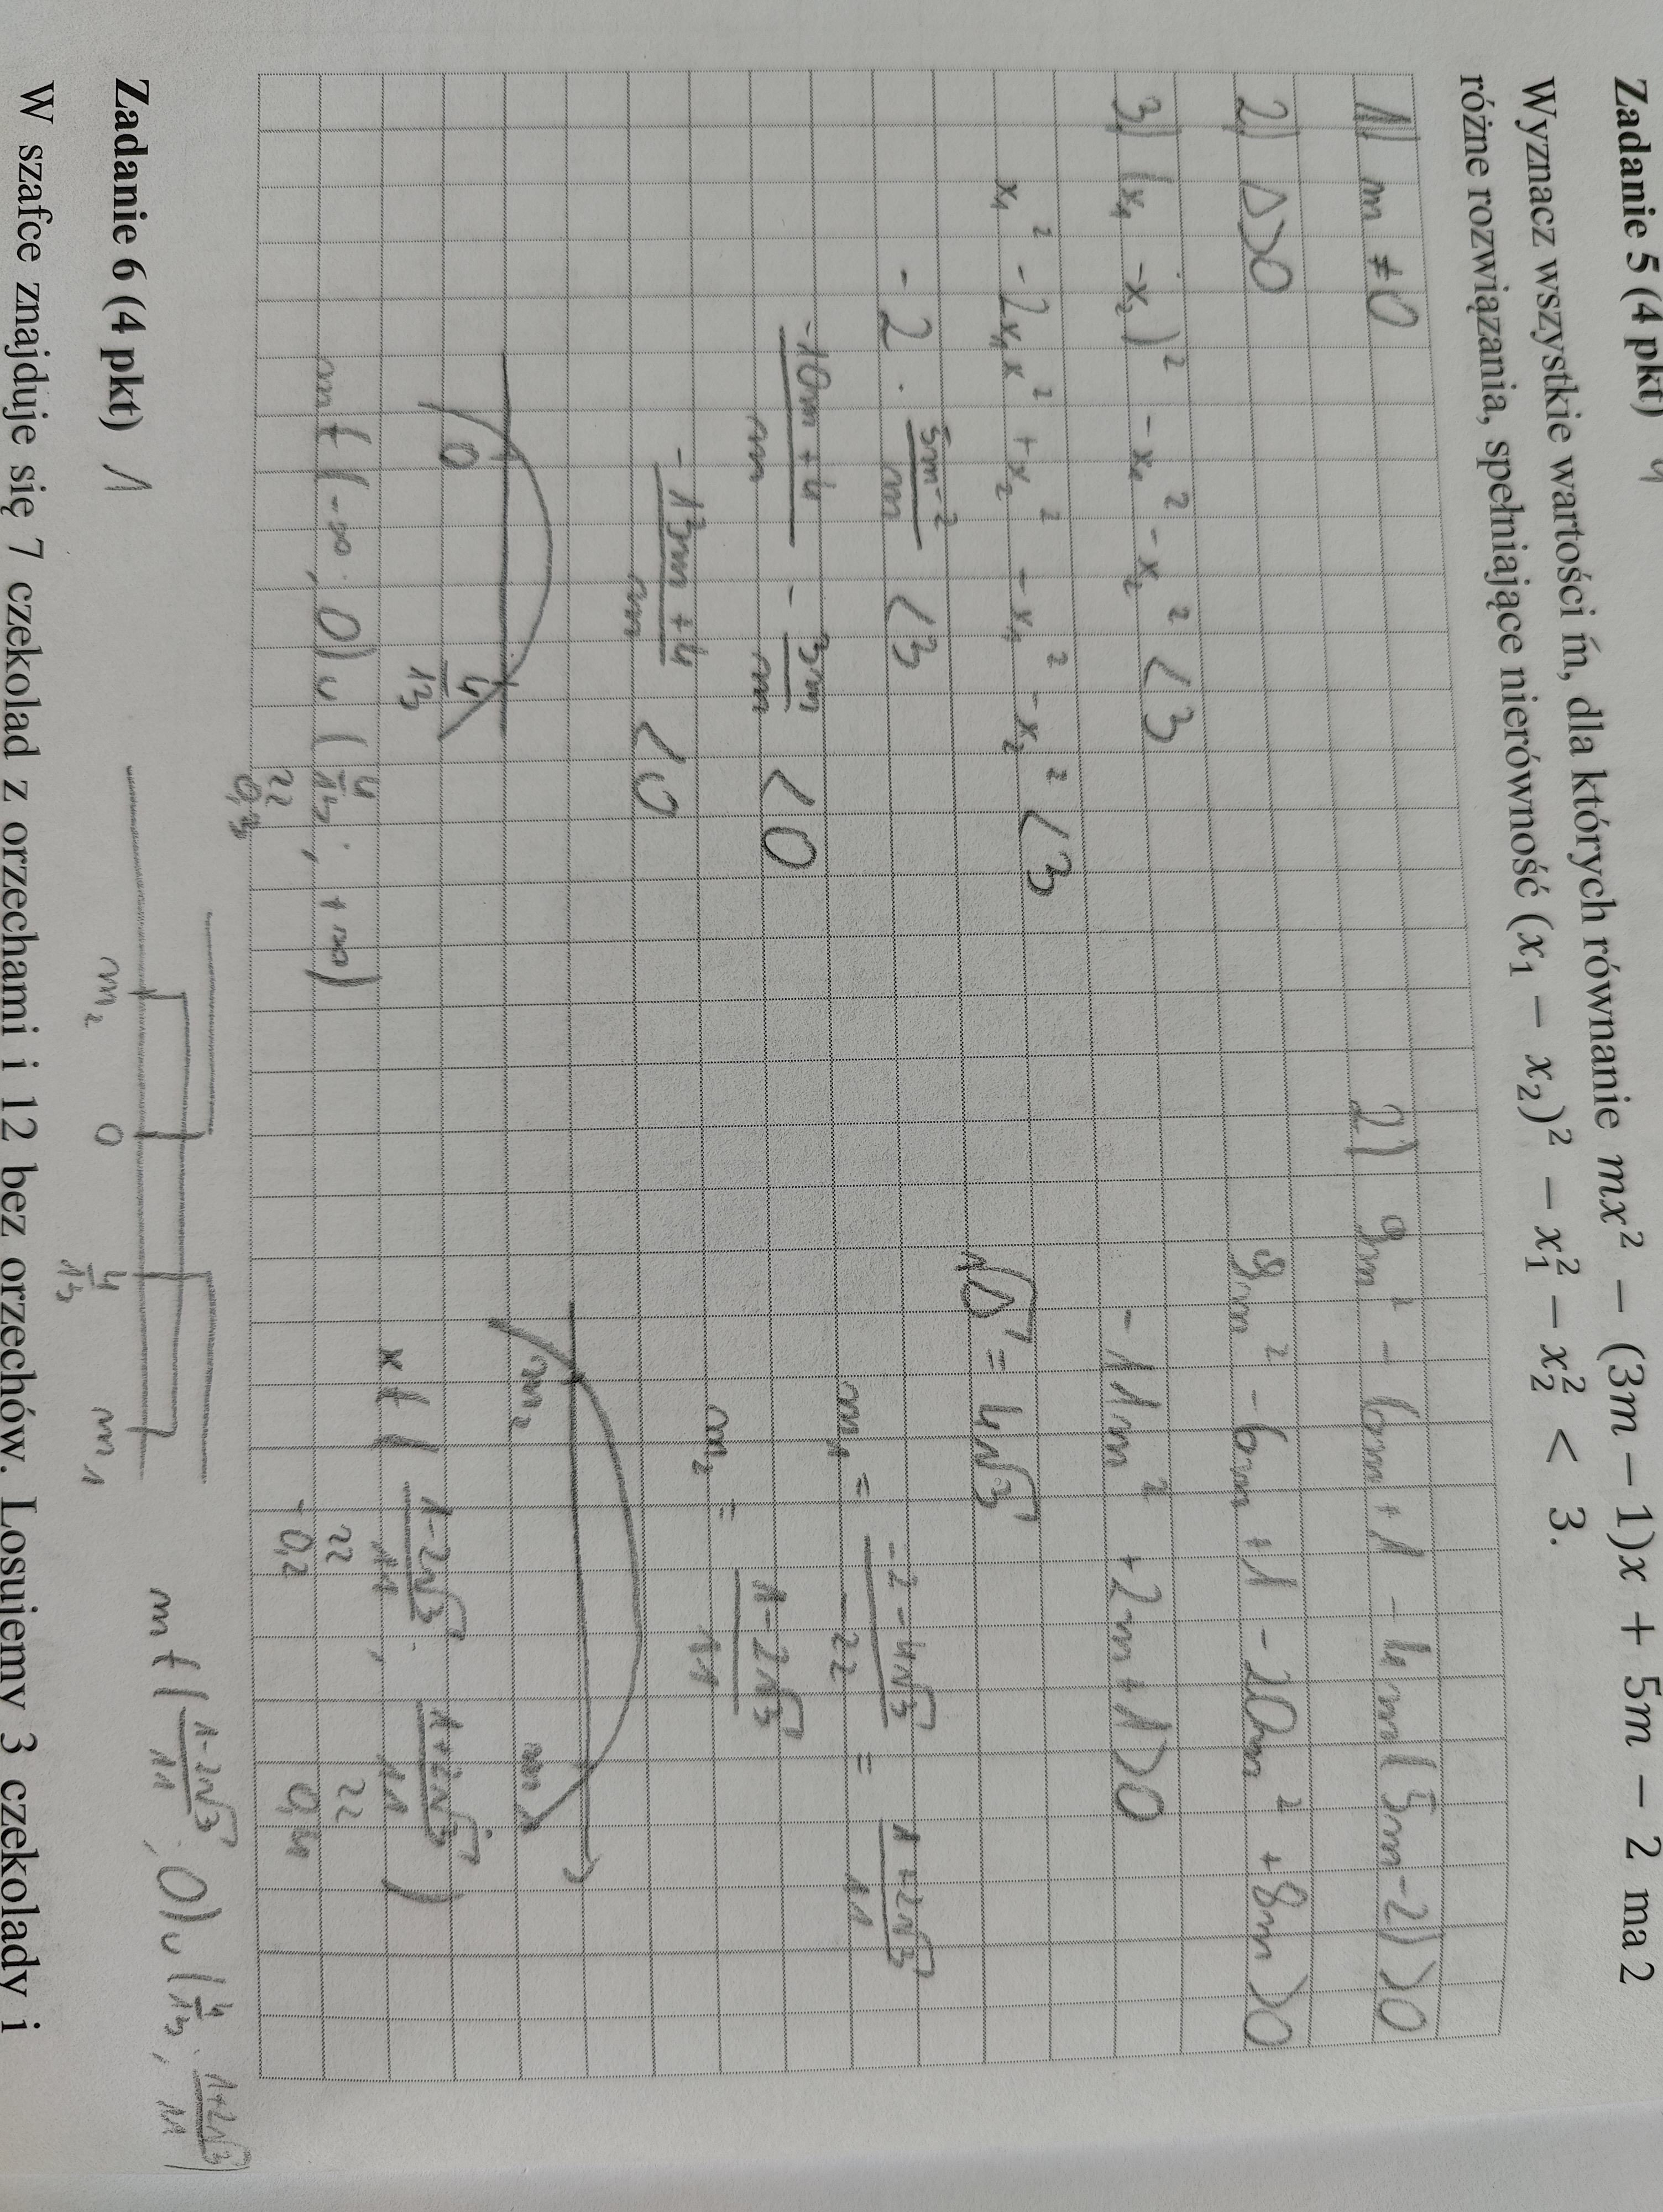 Zadanie 5 (4 pkt) 4
Wyznacz wszystkie wartości m, dla których równanie mx² − (3m − 1)x + 5m − 2 ma 2
różne rozwiązania, spełniające nierówność (x₁ − x₂)² − x₁² − x₂² < 3.
1) m ≠ 0
2) Δ>0
3) (x₁ -x₂)² - x₁² - x₂² < 3
x₁² - 2x₁x² + x₂² - x₁² - x₂² < 3
- 2 · (5m-2)/m < 3
(-10m + 4)/m - 3m/m < 0
(-13m + 4)/m < 0
0 4/13
m ∈ (-∞ ; 0) ∪ (4/13 ; +∞)
≈ 0,3
2) 9m² - 6m + 1 - 4m(5m-2) > 0
9m² - 6m + 1 - 20m² + 8m > 0
- 11m² + 2m + 1 > 0
√Δ = 4√3
m₁ = (-2 - 4√3)/-22 = (1 + 2√3)/11
m₂ = (1 - 2√3)/11
m₂ m₁
x ∈ ( (1-2√3)/11 ; (1+2√3)/11 )
≈ -0,2 ≈ 0,4
m₂ 0 4/13 m₁
m ∈ ( (1-2√3)/11 ; 0) ∪ ( 4/13 ; (1+2√3)/11 )
Zadanie 6 (4 pkt) 1
W szafce znajduje się 7 czekolad z orzechami i 12 bez orzechów. Losujemy 3 czekolady i